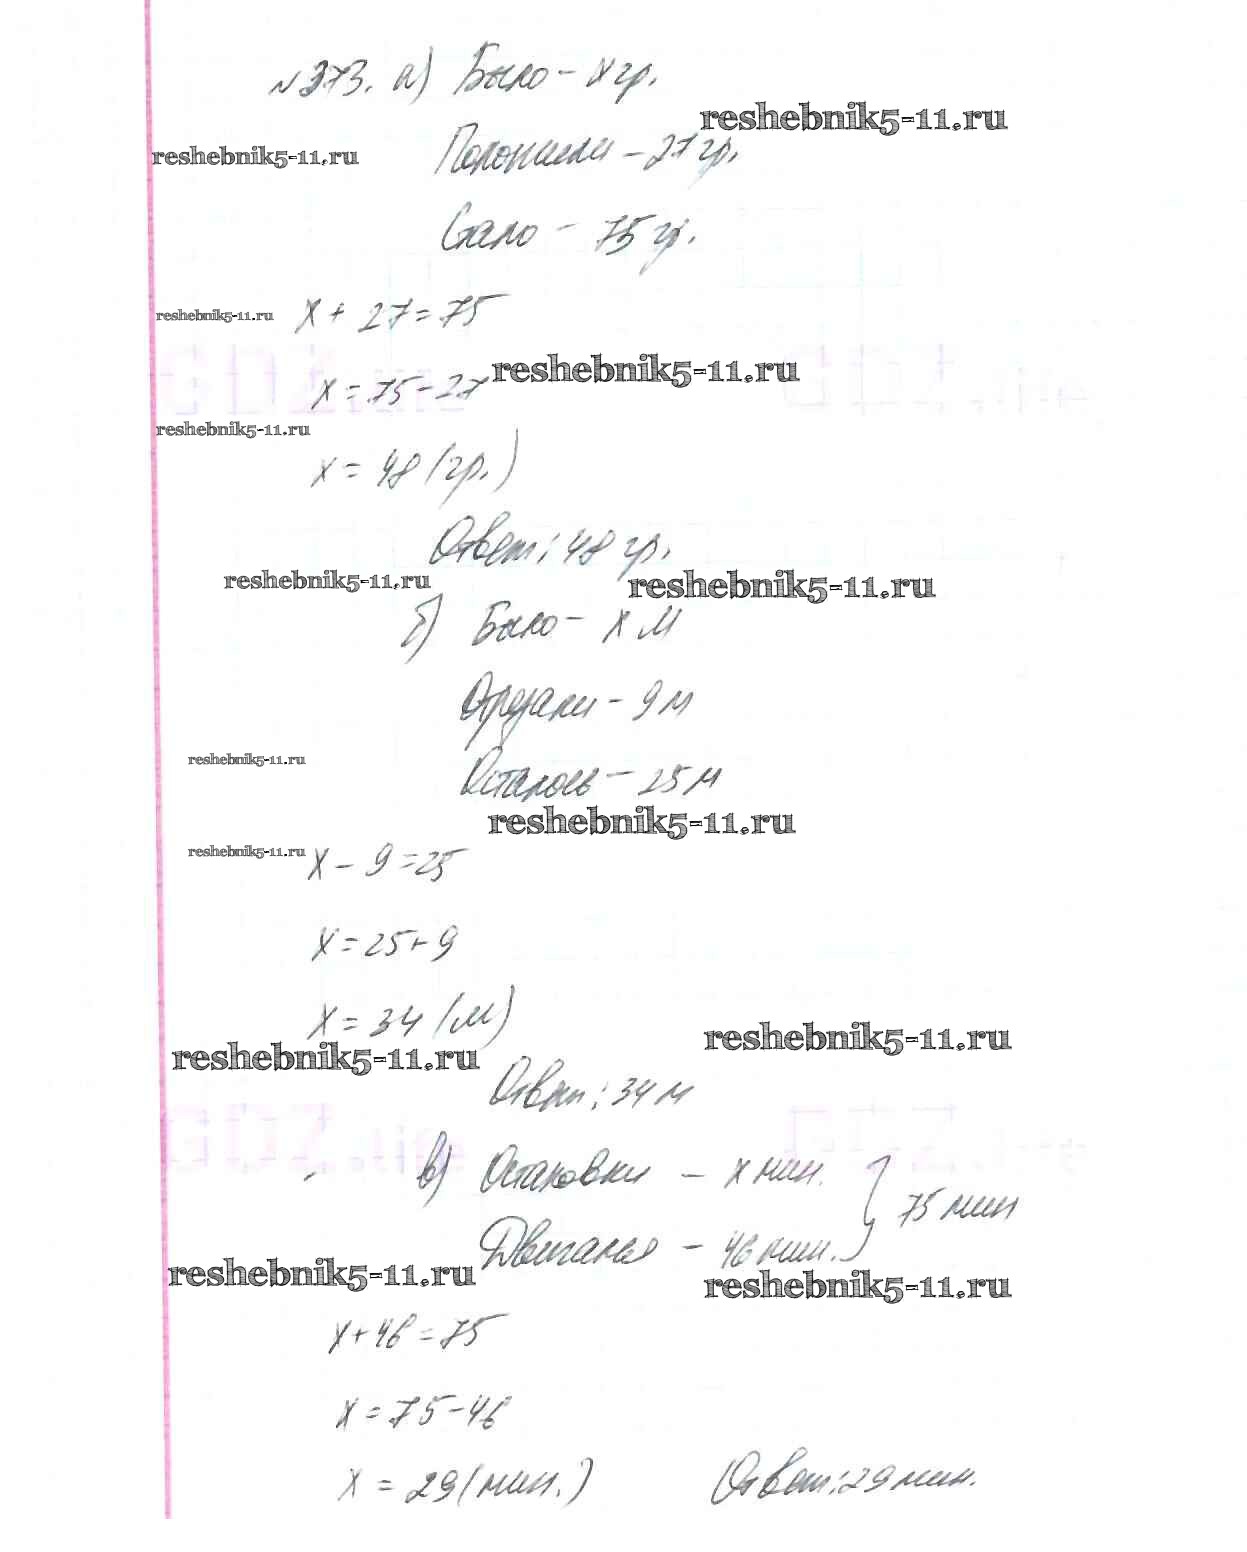 №373. а) Было - х гр.
reshebnik5-11.ru
reshebnik5-11.ru
Положили - 27 гр.
Стало - 75 гр.
reshebnik5-11.ru
х + 27 = 75
reshebnik5-11.ru
х = 75 - 27
reshebnik5-11.ru
х = 48 (гр.)
Ответ: 48 гр.
reshebnik5-11.ru
reshebnik5-11.ru
б) Было - х м
Отрезали - 9 м
reshebnik5-11.ru
Осталось - 25 м
reshebnik5-11.ru
reshebnik5-11.ru
х - 9 = 25
х = 25 + 9
х = 34 (м)
reshebnik5-11.ru
reshebnik5-11.ru
Ответ: 34 м
в) Остановки - х мин. } 75 мин
Двигался - 46 мин.
reshebnik5-11.ru
reshebnik5-11.ru
х + 46 = 75
х = 75 - 46
х = 29 (мин.) Ответ: 29 мин.